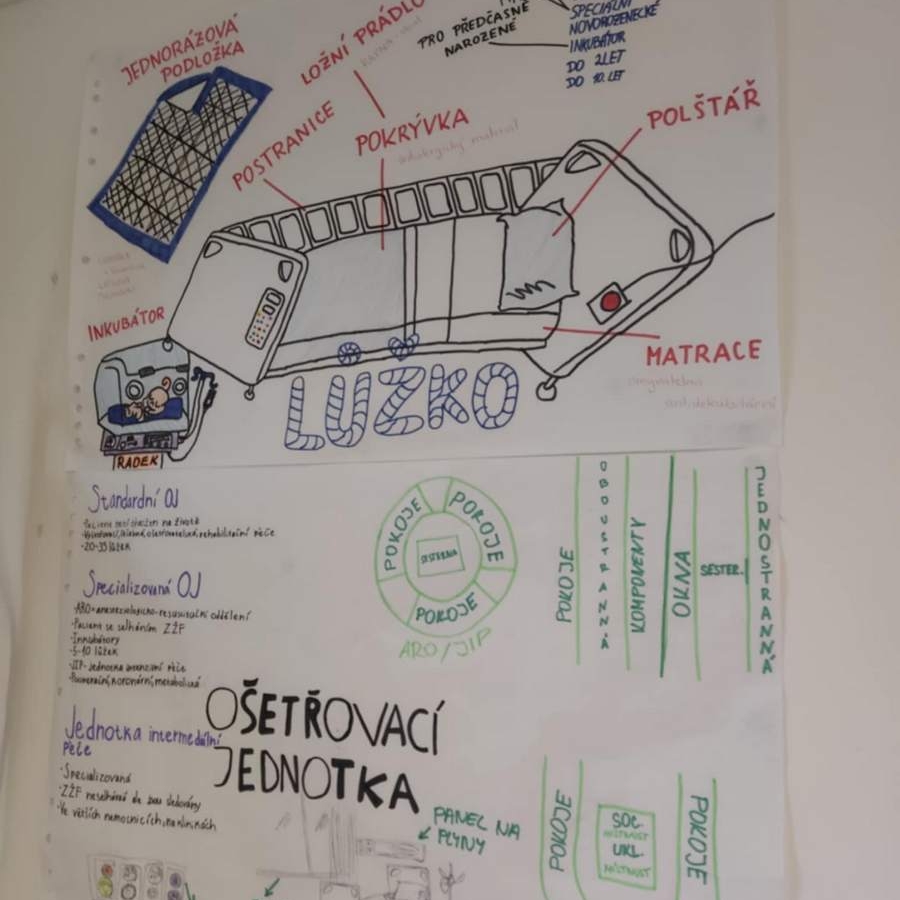 JEDNORÁZOVÁ
PODLOŽKA
LOŽNÍ PRÁDLO
PRO PŘEDČASNĚ
NAROZENÉ
SPECIÁLNÍ
NOVOROZENECKÉ
INKUBÁTOR
DO 2LET
DO 10. LET
POSTRANICE
POKRÝVKA
POLŠTÁŘ
INKUBÁTOR
RADEK
MATRACE
LUZKO
Standardní OJ
20-35 lůžek
Specializovaná OJ
ARO-anesteziologicko-resuscitační oddělení
Pacient se selháním ZŽF
Innkubátory
5-10 lůžek
JIP- Jednotka intenzivní péče
Jednotka intermediální
péče
Specializovaná
ZŽF neselhávají ale jsou sledovány
Ve větších nemocnicích, na klinikách
OŠETŘOVACÍ
JEDNOTKA
POKOJE
POKOJE
SESTERNA
POKOJE
ARO/JIP
POKOJE
OBOUSTRANNÁ
KOMPONENTY
OKNA
SESTER.
JEDNOSTRANNÁ
PANEL NA
PLYNY
POKOJE
SOC.
MÍSTNOST
UKL.
MÍSTNOST
POKOJE